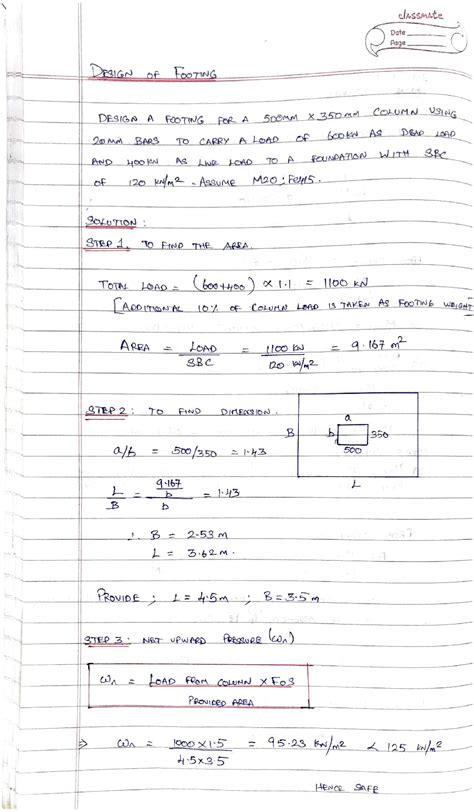 classmate
Date
Page
DESIGN OF FOOTING
DESIGN A FOOTING FOR A 500MM X 350MM COLUMN USING
20MM BARS TO CARRY A LOAD OF 600KN AS DEAD LOAD
AND 400KN AS LIVE LOAD TO A FOUNDATION WITH SBC
OF 120 KN/M² - ASSUME M20 : Fe415.
SOLUTION :
STEP 1. TO FIND THE AREA.
TOTAL LOAD = (600+400) × 1.1 = 1100 KN
[ADDITIONAL 10% OF COLUMN LOAD IS TAKEN AS FOOTING WEIGHT]
AREA = LOAD / SBC = 1100 KN / 120 KN/m² = 9.167 m²
STEP 2 : TO FIND DIMENSION.
a/b = 500/350 = 1.43
B b a 350
500
L
L/B = (9.167/b)/b = 1.43
∴ B = 2.53 m
L = 3.62 m.
PROVIDE ; L = 4.5m ; B = 3.5 m
STEP 3 : NET UPWARD PRESSURE (ωn)
ωn = LOAD FROM COLUMN × FOS / PROVIDED AREA
⇒ ωn = 1000 × 1.5 / 4.5×3.5 = 95.23 KN/m² < 125 KN/m²
HENCE SAFE